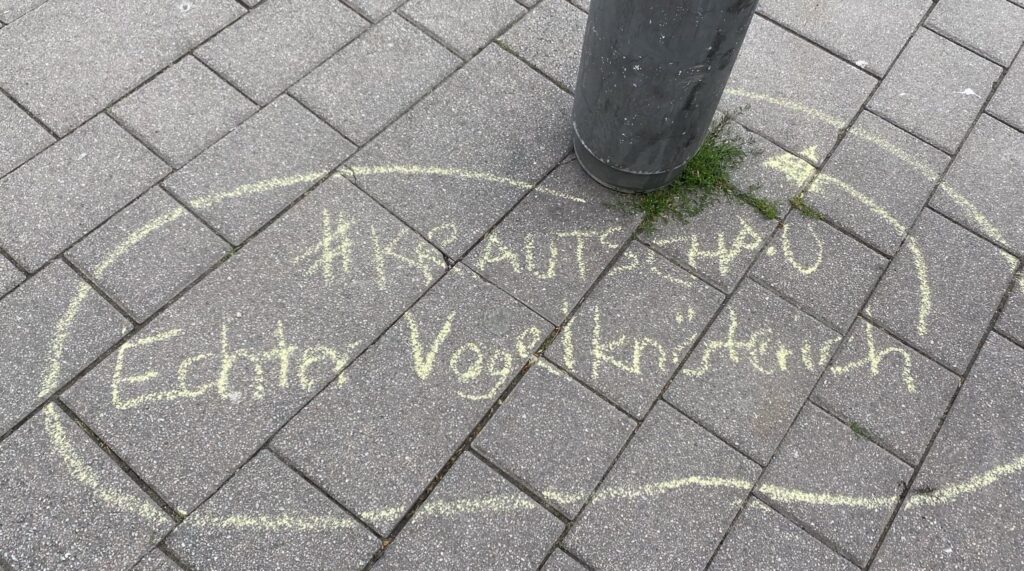 #KRAUTSCHAU
Echter Vogelknöterich